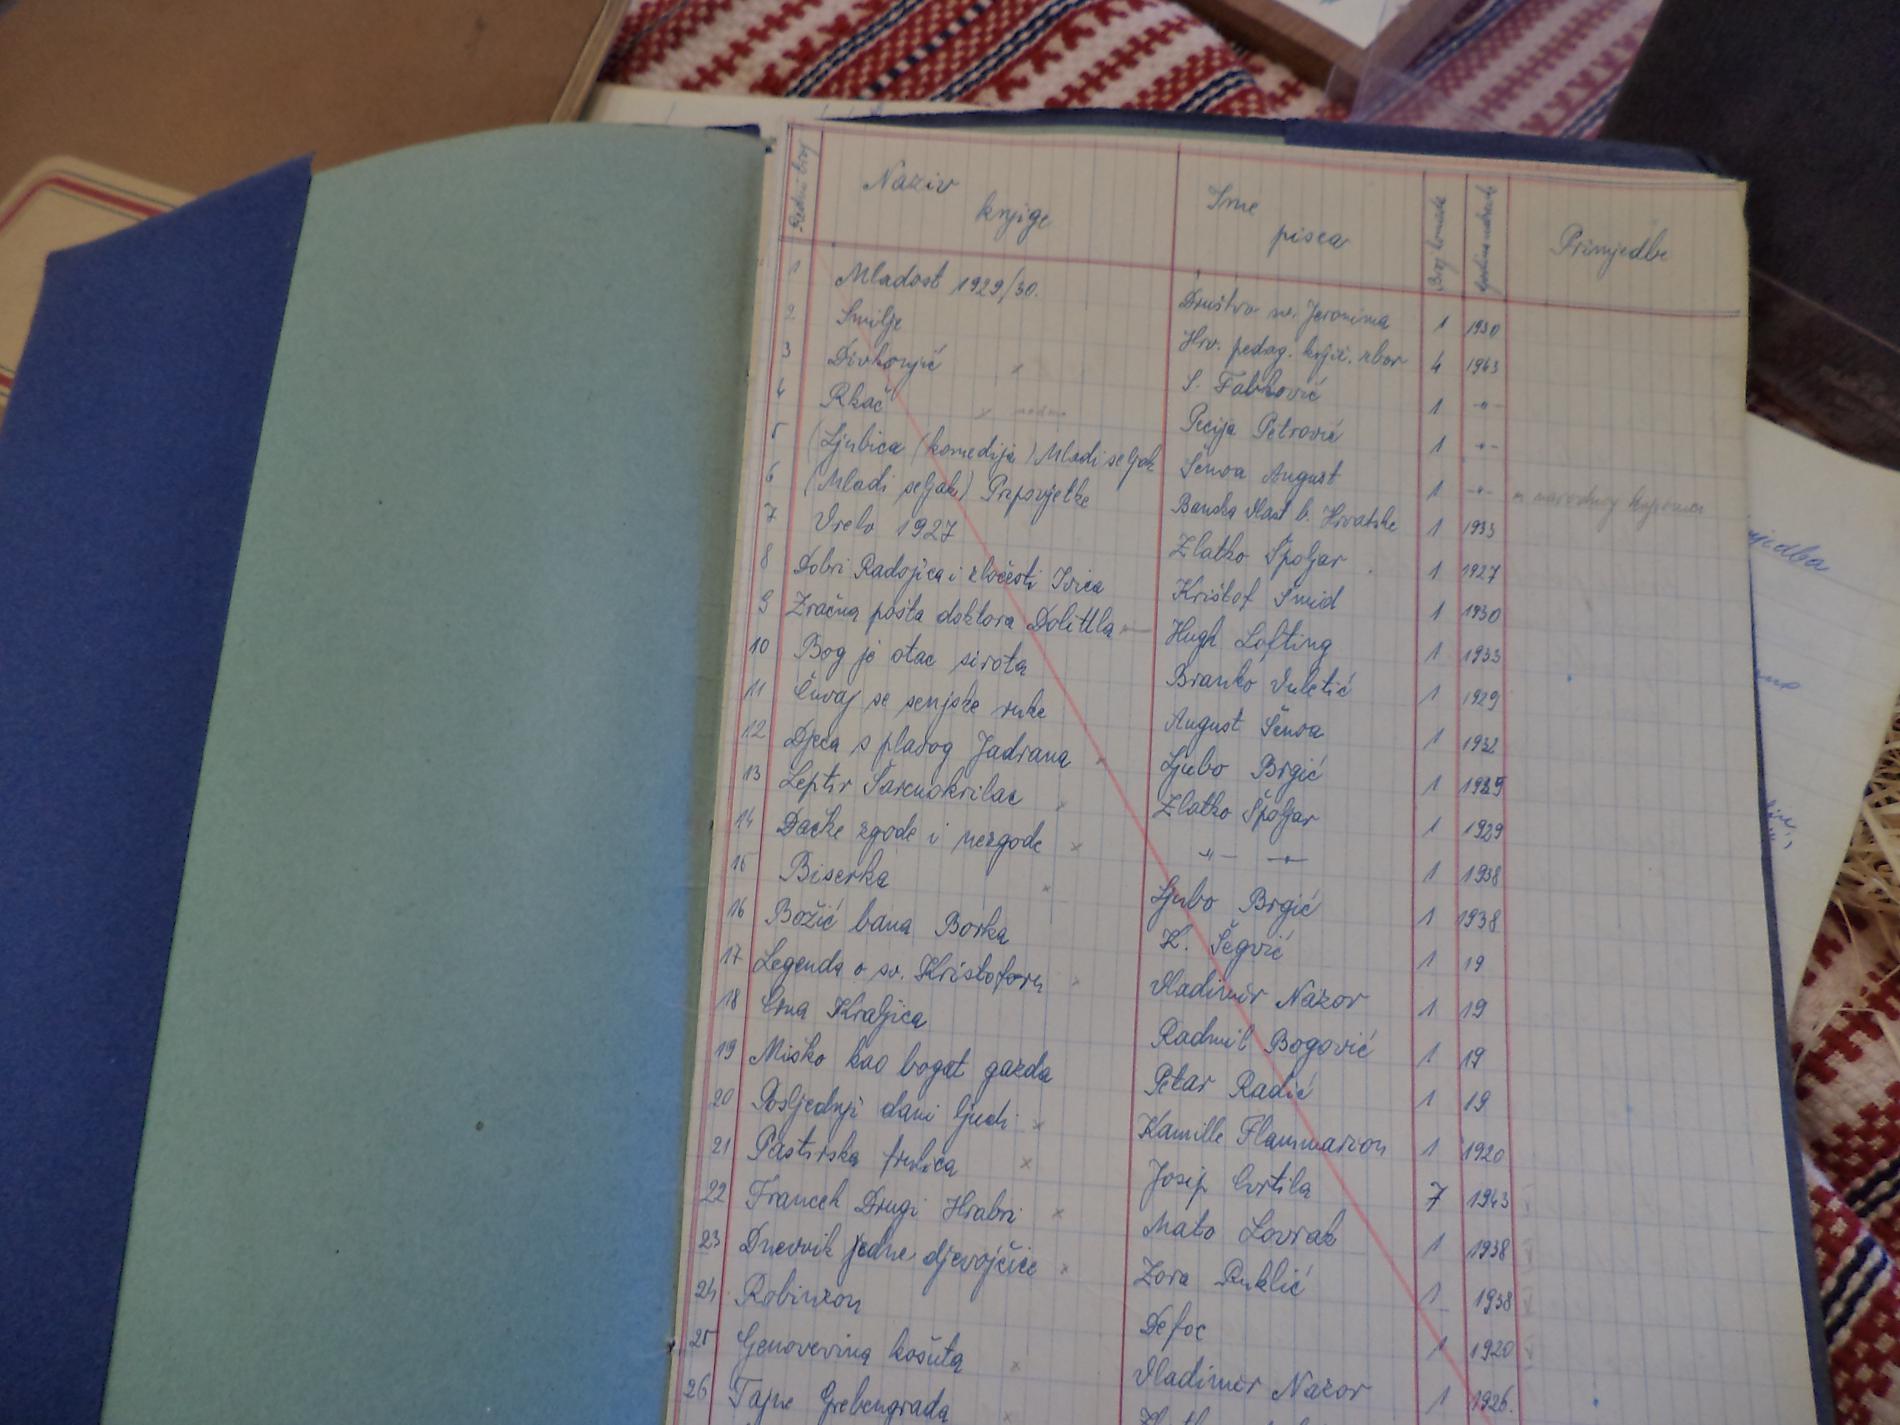 Redni broj Naziv knjige Ime pisca Broj komada Primjedbe
1 Mladost 1929/30. Društvo sv. Jeronima 1 1930
2 Smilje Hrv. pedag. knjiž. zbor 4 1943
3 Divkonjić x S. Fabković 1 -"-
4 Rkač x Pecija Petrović 1 -"-
5 (Ljubica (komedija) Mladi seljak Šenoa August 1 -"-
6 (Mladi seljak) Pripovjetke Banska vlast b. Hrvatske 1 1933
7 Vrelo 1927 Zlatko Špoljar 1 1927
8 Dobri Radojica i zločesti Ivica Krištof Šmid 1 1930
9 Zračna pošta doktora Dolittla Hugh Lofting 1 1933
10 Bog je otac sirota Branko Vuletić 1 1929
11 Čuvaj se senjske ruke August Šenoa 1 1932
12 Djeca s plavog Jadrana x Ljubo Brgić 1 1929
13 Leptir Šarenokrilac x Zlatko Špoljar 1 1929
14 Đačke zgode i nezgode x -"- -"- 1 1938
15 Biserka x Ljubo Brgić 1 1938
16 Božić bana Borka K. Šegvić 1 19
17 Legenda o sv. Kristoforu x Vladimir Nazor 1 19
18 Crna Kraljica Radmil Bogović 1 19
19 Miško kao bogat gazda Petar Radić 1 19
20 Posljednji dani ljudi x Kamille Flammarion 1 1920
21 Pastirska frulica x Josip Cvrtila 7 1943
22 Francek Drugi Hrabri x Mato Lovrak 1 1938
23 Dnevnik jedne djevojčice x Zora Ruklić 1 1938
24 Robinzon Defoe 1 1920
25 Genovevina košuta x Vladimir Nazor 1 1926.
26 Tajne Grebengrada x